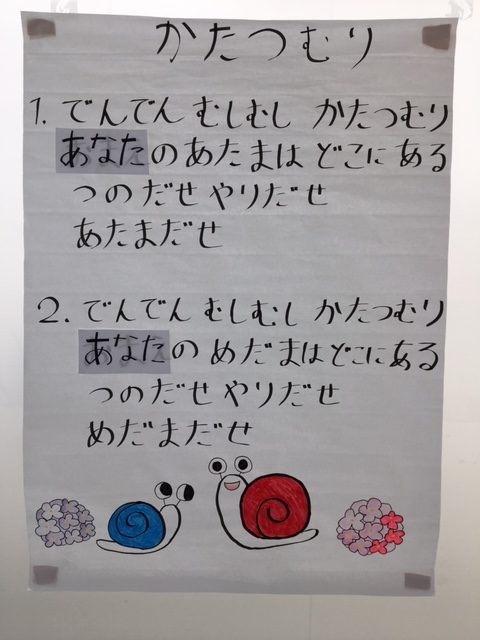 かたつむり
1. でんでん むしむし かたつむり
あなたの あたまは どこに ある
つのだせ やりだせ
あたまだせ
2. でんでん むしむし かたつむり
あなたの めだまは どこに ある
つのだせ やりだせ
めだまだせ